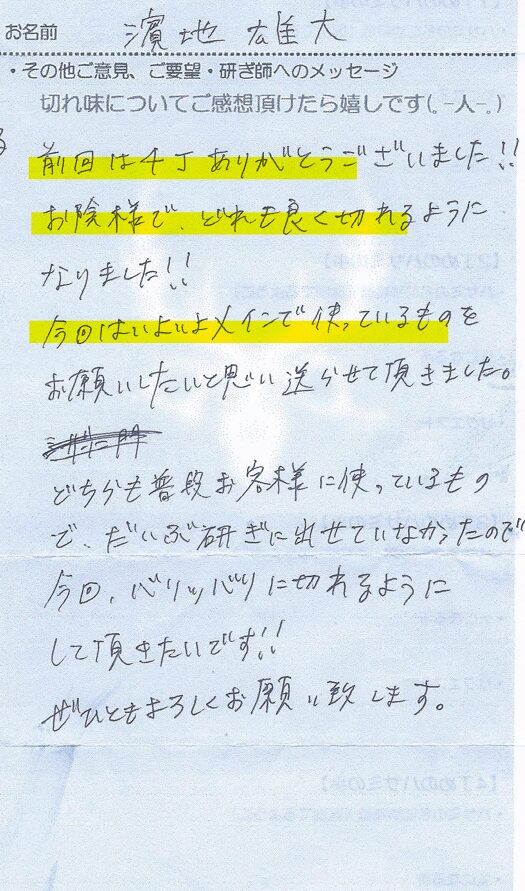 お名前 濵地 雄大
・その他ご意見、ご要望・研ぎ師へのメッセージ
切れ味についてご感想頂けたら嬉しです(｡-人-｡)
前回は4丁ありがとうございました!!
お陰様で、どれも良く切れるように
なりました!!
今回はいよいよメインで使っているものを
お願いしたいと思い送らせて頂きました。
どちらも普段お客様に使っているもの
で、だいぶ研ぎに出せていなかったので
今回、バリッバリに切れるように
して頂きたいです!!
ぜひともよろしくお願い致します。